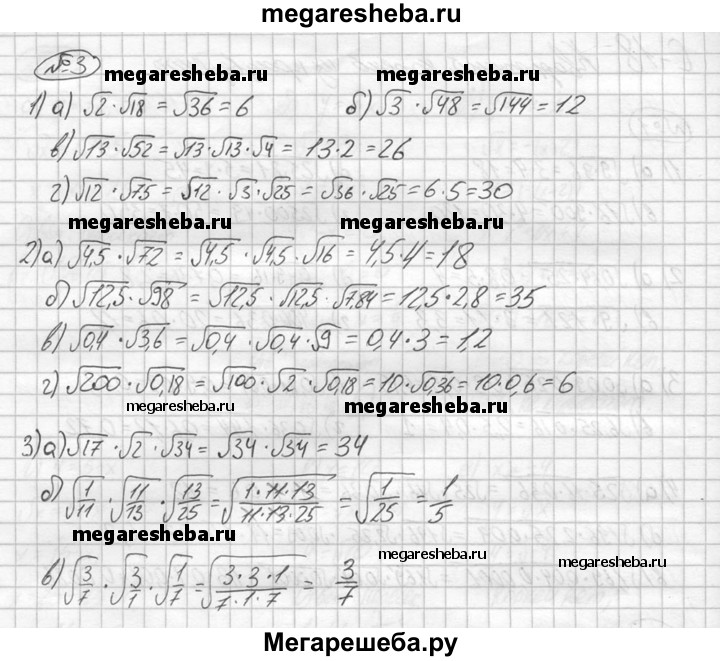 megaresheba.ru
№3
megaresheba.ru megaresheba.ru
1) а) √2 · √18 = √36 = 6 б) √3 · √48 = √144 = 12
в) √13 · √52 = √13 · √13 · √4 = 13 · 2 = 26
г) √12 · √75 = √12 · √3 · √25 = √36 · √25 = 6 · 5 = 30
megaresheba.ru megaresheba.ru
2) а) √4,5 · √72 = √4,5 · √4,5 · √16 = 4,5 · 4 = 18
б) √12,5 · √98 = √12,5 · √12,5 · √7,84 = 12,5 · 2,8 = 35
в) √0,4 · √3,6 = √0,4 · √0,4 · √9 = 0,4 · 3 = 1,2
г) √200 · √0,18 = √100 · √2 · √0,18 = 10 · √0,36 = 10 · 0,6 = 6
megaresheba.ru megaresheba.ru
3) а) √17 · √2 · √34 = √34 · √34 = 34
б) √(1/11) · √(11/13) · √(13/25) = √(1·11·13/11·13·25) = √(1/25) = 1/5
megaresheba.ru megaresheba.ru megaresheba.ru
в) √(3/7) · √(3/1) · √(1/7) = √(3·3·1/7·1·7) = 3/7
Мегарешеба.ру